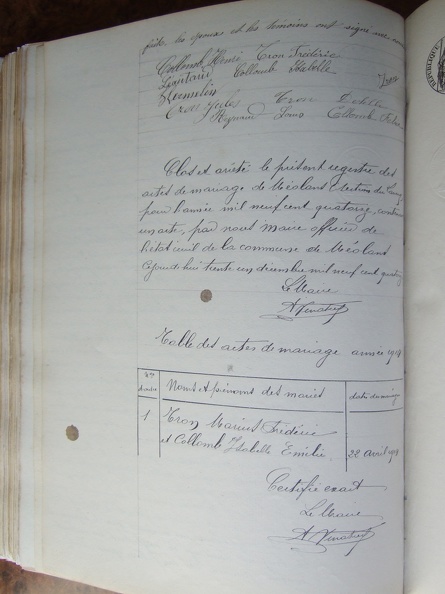 faite, les époux et les témoins ont signé
Collomb Henri Tron Frédéric
Collomb Isabelle
Tron Jules Tron
Reynaud Louis Collomb
Clos et arrêté le présent registre des
actes de mariage de Méolans section du
pour l'année mil neuf cent quatorze, contenant
un acte, par nous Maire officier de
l'état civil de la commune de Méolans
Cejourd'hui trente un décembre mil neuf cent quatorze
Le Maire
Table des actes de mariage année 1914
Noms et prénoms des mariés
date du mariage
1
Tron Marius Frédéric
et Collomb Isabelle Emilie
28 avril 1914
Certifié exact
Le Maire
RÉPUBLIQUE